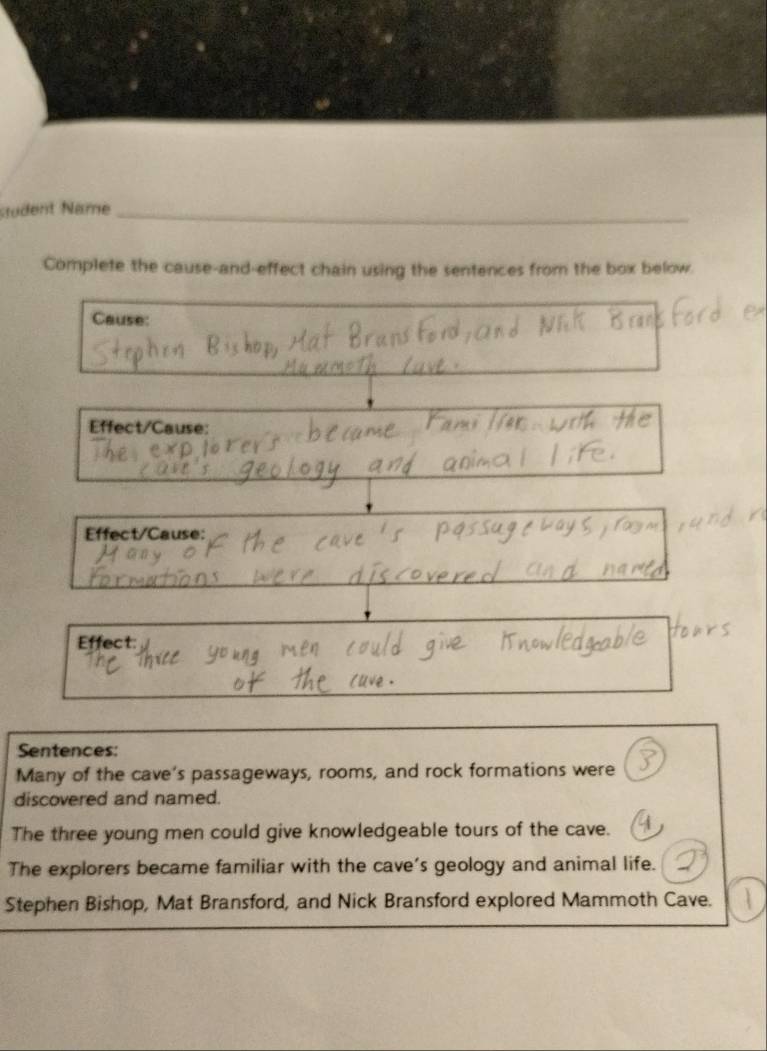 Student Name
Complete the cause-and-effect chain using the sentences from the box below.
Cause:
Stephen Bishop, Mat Bransford, and Nick Bransford ex
Mammoth Cave.
Effect/Cause:
The explorer's became familiar with the
cave's geology and animal life.
Effect/Cause:
Many of the cave's passageways, rooms, and ro
formations were discovered and named.
Effect:
The three young men could give knowledgeable tours
of the cave.
Sentences:
Many of the cave's passageways, rooms, and rock formations were 3
discovered and named.
The three young men could give knowledgeable tours of the cave. 4
The explorers became familiar with the cave's geology and animal life. 2
Stephen Bishop, Mat Bransford, and Nick Bransford explored Mammoth Cave. 1